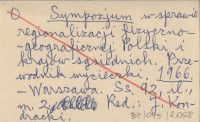 Sympozjum w sprawie
regionalizacji fizyczno-
-geograficznej Polski i
krajów sąsiednich. Prze-
wodnik wycieczki. 1966.
- Warszawa. Ss. 92, il.,
m. 2 Red.: J. Kon-
dracki.